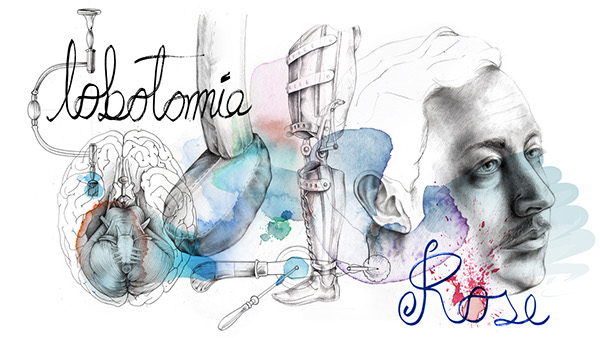 lobotomía
Rose